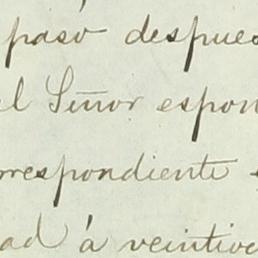 paso despues
el Señor espon
rrespondiente
ad á veintiva